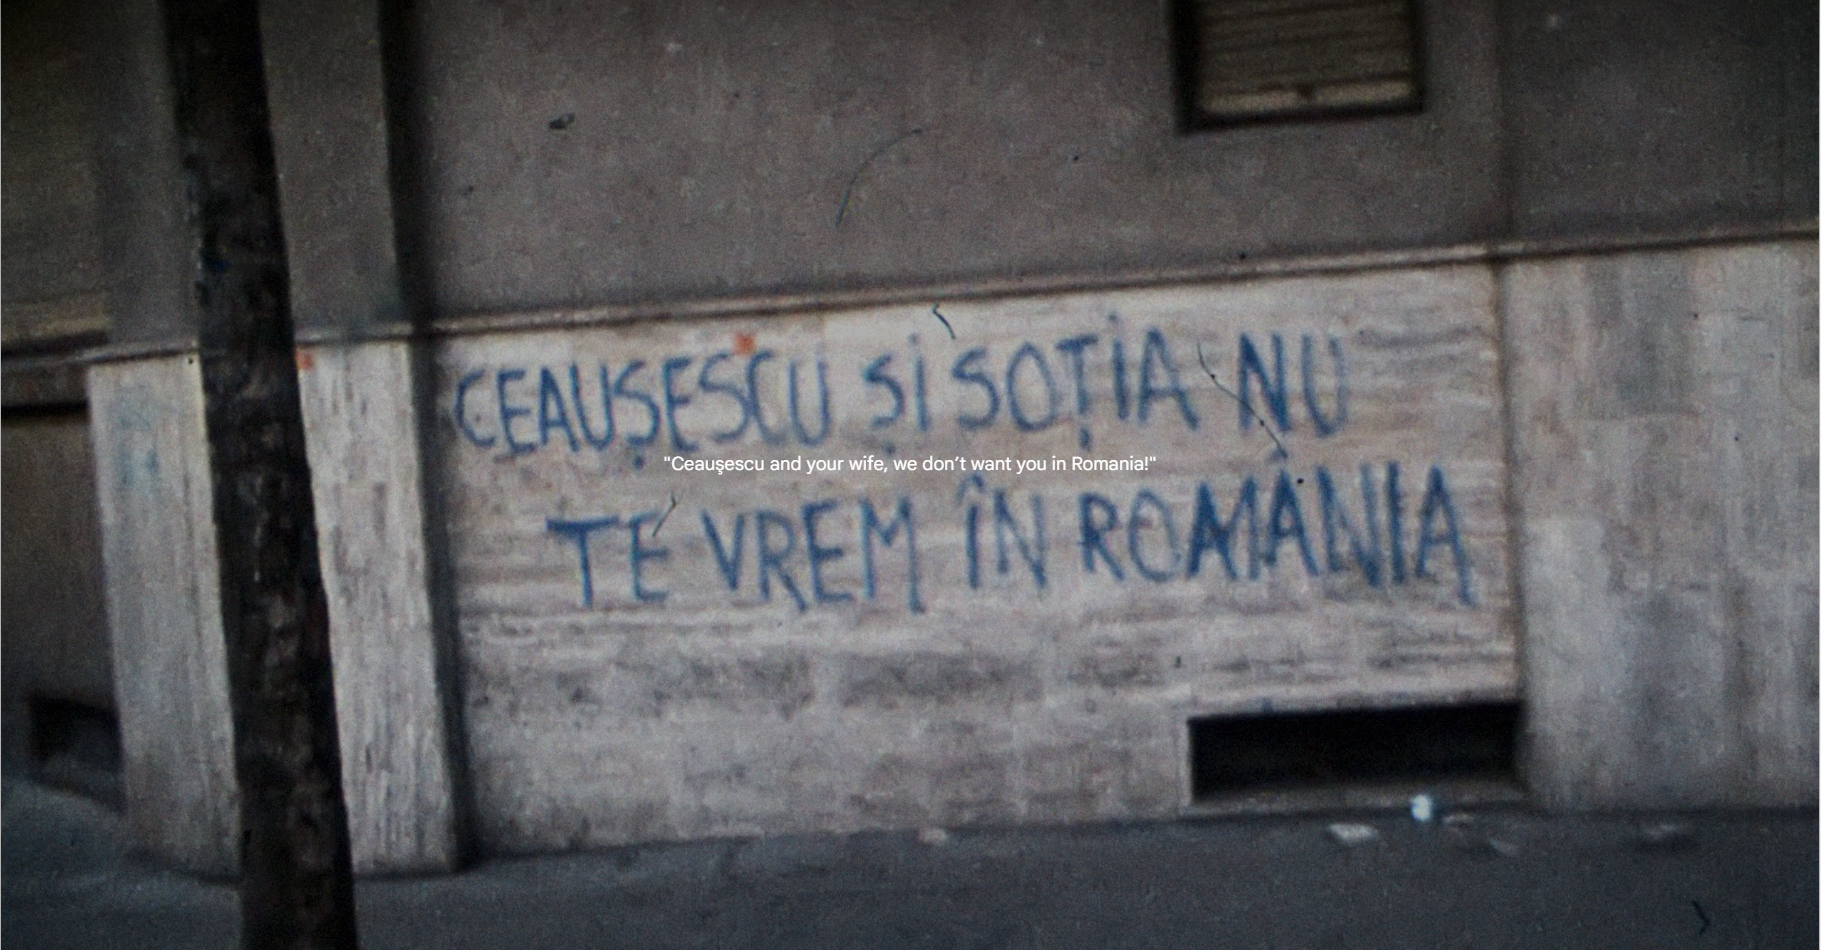 CEAUȘESCU ȘI SOȚIA NU
"Ceauşescu and your wife, we don’t want you in Romania!"
TE VREM ÎN ROMÂNIA